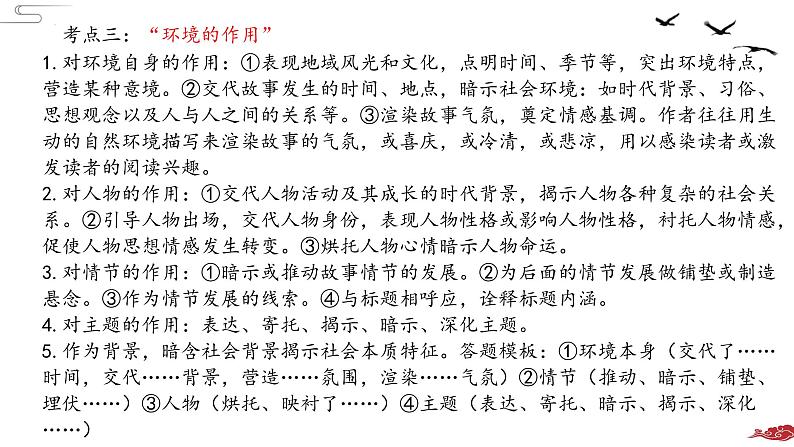 考点三：“环境的作用”
1.对环境自身的作用：①表现地域风光和文化，点明时间、季节等，突出环境特点，
营造某种意境。②交代故事发生的时间、地点，暗示社会环境：如时代背景、习俗、
思想观念以及人与人之间的关系等。③渲染故事气氛，奠定情感基调。作者往往用生
动的自然环境描写来渲染故事的气氛，或喜庆，或冷清，或悲凉，用以感染读者或激
发读者的阅读兴趣。
2.对人物的作用：①交代人物活动及其成长的时代背景，揭示人物各种复杂的社会关
系。②引导人物出场，交代人物身份，表现人物性格或影响人物性格，衬托人物情感，
促使人物思想情感发生转变。③烘托人物心情暗示人物命运。
3.对情节的作用：①暗示或推动故事情节的发展。②为后面的情节发展做铺垫或制造
悬念。③作为情节发展的线索。④与标题相呼应，诠释标题内涵。
4.对主题的作用：表达、寄托、揭示、暗示、深化主题。
5.作为背景，暗含社会背景揭示社会本质特征。答题模板：①环境本身（交代了……
时间，交代……背景，营造……氛围，渲染……气氛）②情节（推动、暗示、铺垫、
埋伏……）③人物（烘托、映衬了……）④主题（表达、寄托、暗示、揭示、深化
……）